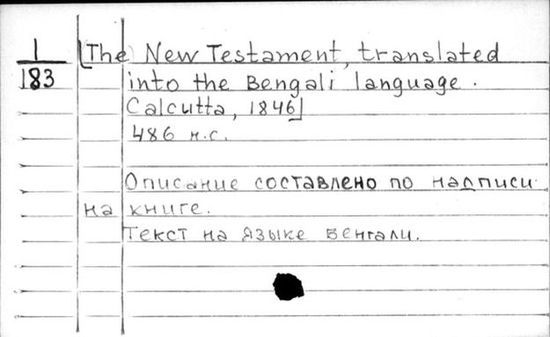 1
183
[The New Testament, translated
into the Bengali language.
Calcutta, 1846]
486 н.с.
Описание составлено по надписи
на книге.
Текст на языке бенгали.